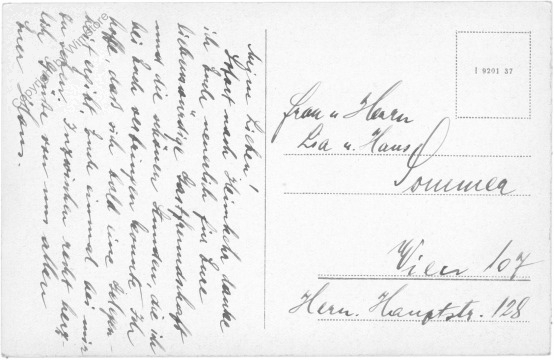 Meine Lieben!
Sofort nach Heimkehr danke
ich Euch neuerlich für Eure
liebenswürdige Gastfreundschaft
und die schönen Stunden, die ich
bei Euch verbringen konnte. Ich
hoffe, daß sich bald eine Gelegen-
heit ergibt, Euch einmal bei mir
zu sehen. Inzwischen recht herz-
lich Grüße von uns allen
Euer Hans.
I 9201 37
Frau u Herrn
Lia u. Hans
Sommer
Wien 107
Hern. Hauptstr. 128